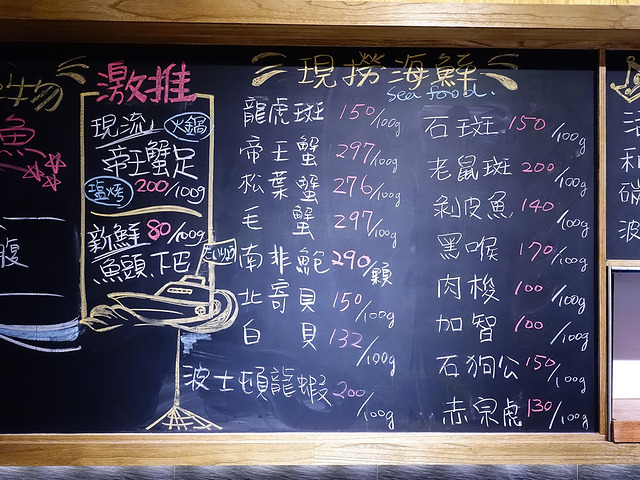 魚
腹
激推
現流 火鍋
帝王蟹足
塩烤 200/100g
新鮮 80/100g
魚頭.下巴
現撈海鮮
sea food.
龍虎斑 150/100g
帝王蟹 297/100g
松葉蟹 276/100g
毛蟹 297/100g
南非鮑 290/顆
北寄貝 150/100g
白貝 132/100g
波士頓龍蝦 200/100g
石斑 150/100g
老鼠斑 200/100g
剝皮魚 140/100g
黑喉 170/100g
肉梭 100/100g
加智 100/100g
石狗公 150/100g
赤宗虎 130/100g